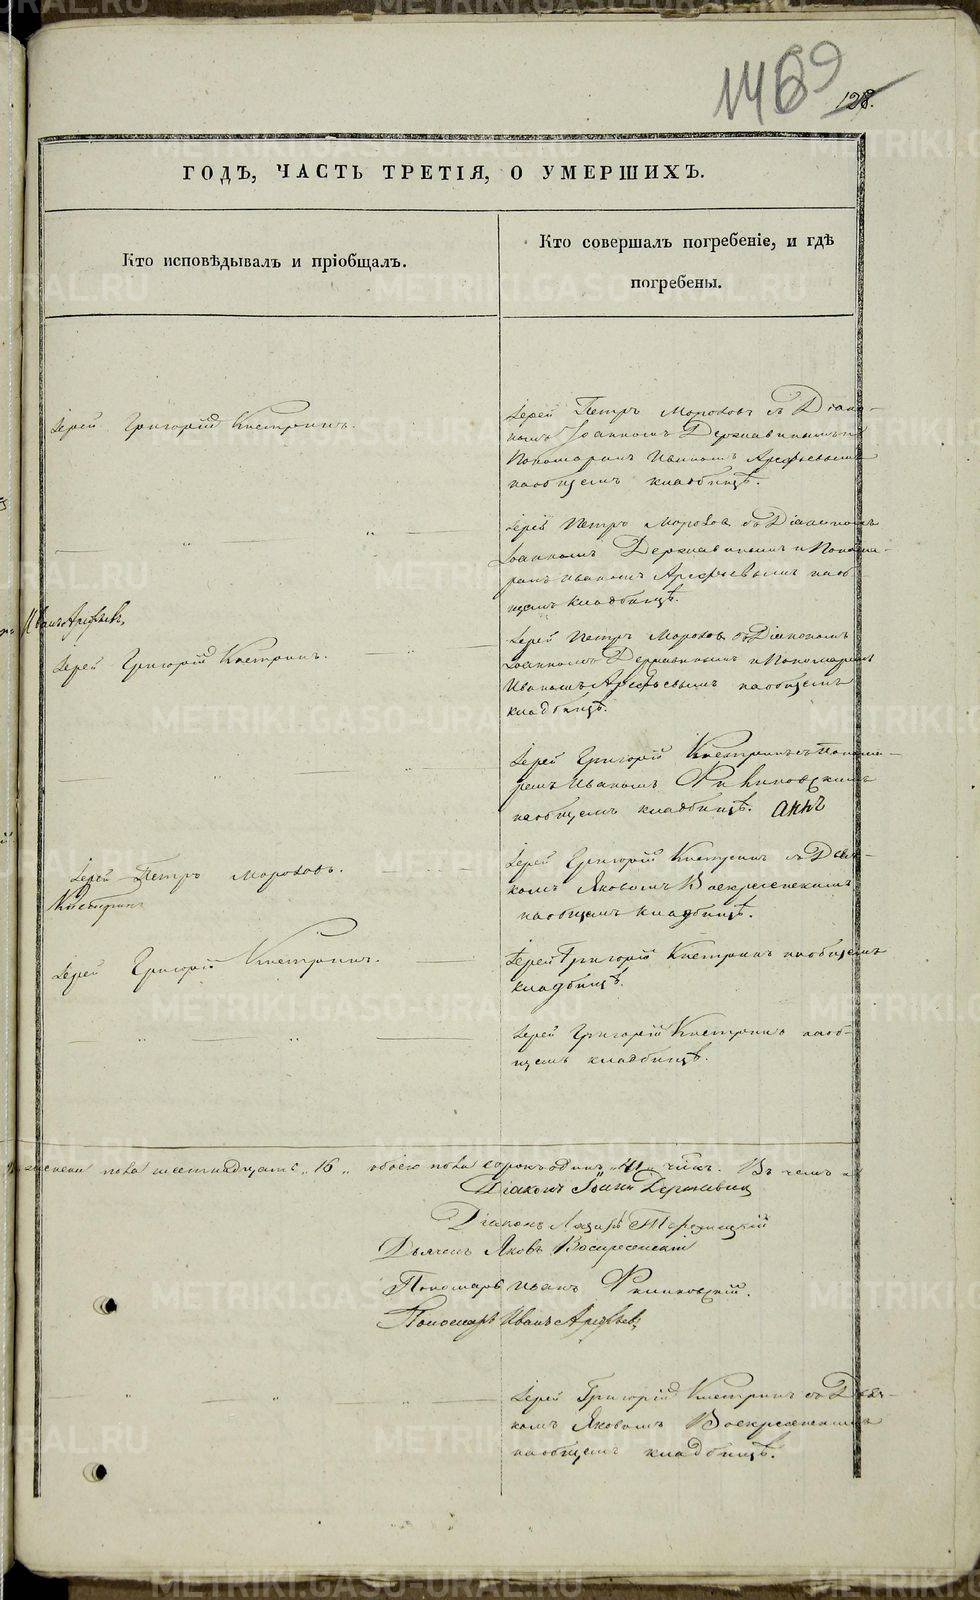 1469
128.
ГОДЪ, ЧАСТЬ ТРЕТІЯ, О УМЕРШИХЪ.
Кто исповѣдывалъ и пріобщалъ.
Кто совершалъ погребеніе, и гдѣ
погребены.
Іерей Григорій Кистринъ.
Іерей Петръ Мороховъ съ Діако-
номъ Іоанномъ Державинымъ и
Пономаремъ Иваномъ Арефьевымъ
на общемъ кладбищѣ.
Іерей Петръ Морохов съ Діакономъ
Іоанномъ Державинымъ и Понома-
ремъ Иваномъ Арефьевымъ на об-
щемъ кладбищѣ.
Иванъ Арефьевъ,
Іерей Григорій Кистринъ.
Іерей Петръ Морохов съ Діакономъ
Іоанномъ Державинымъ и Пономаремъ
Иваномъ Арефьевымъ на общемъ
кладбищѣ.
Іерей Григорій Кистринъ съ Понома-
ремъ Иваномъ
на общемъ кладбищѣ.
Іерей Петръ Мороховъ.
Кистринъ
Іерей Григорій Кистринъ съ Дья-
комъ Яковомъ Воскресенскимъ
на общемъ кладбищѣ.
Іерей Григорій Кистринъ.
Іерей Григорій Кистринъ на общемъ
кладбищѣ.
Іерей Григорій Кистринъ на об-
щемъ кладбищѣ.
пола шестнадцать „16„ обоего пола сорокъ одинъ „41„ Въ чемъ и
Діаконъ Іоаннъ Державинъ
Діаконъ
Дьячекъ Яковъ Воскресенскій
Пономарь Иванъ
Пономарь Иванъ Арефьевъ
Іерей Григорій Кистринъ съ Дья-
комъ Яковомъ Воскресенскимъ
на общемъ кладбищѣ.
METRIKI.GASO-URAL.RU